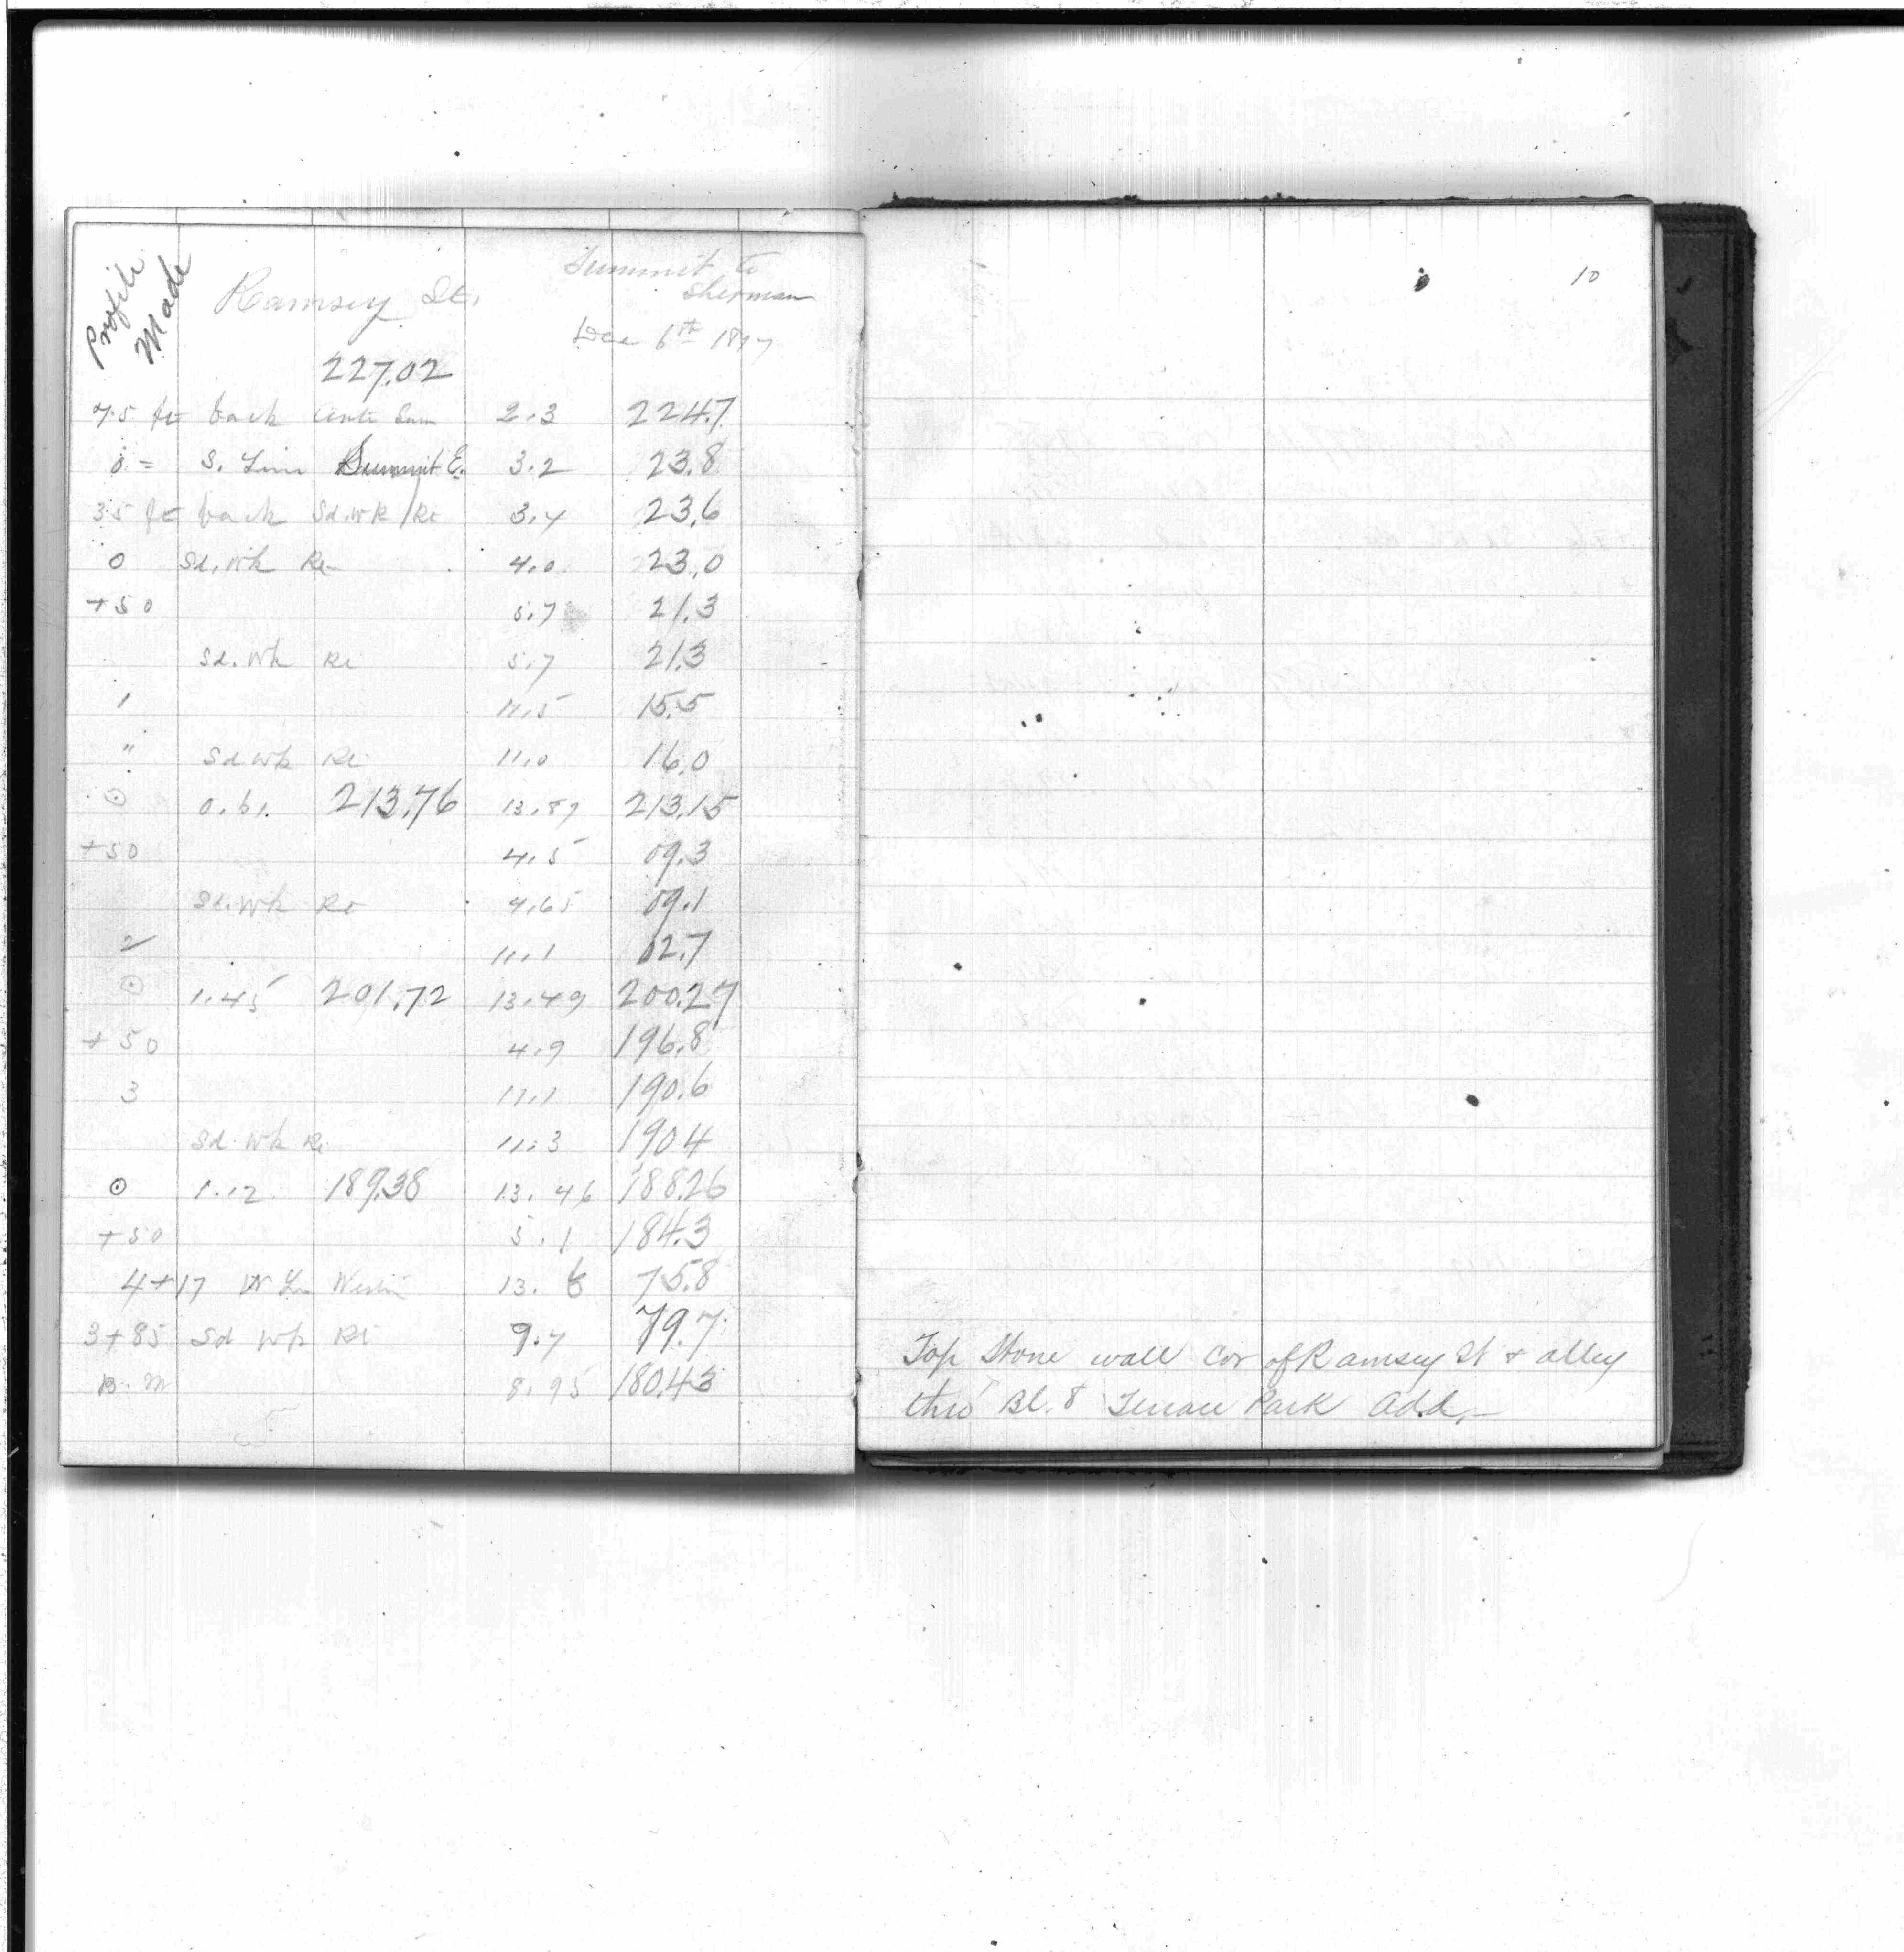 Profile Made
Ramsey St. Summit to
Sherman
Dec 6th 1897
227.02
75 ft back Cente Sum 2.3 224.7
0 = S. Line Summit E. 3.2 23.8
35 ft back Sd. Wk Rt 3.4 23.6
0 Sd. Wk Rt 4.0 23.0
+50 5.7 21.3
Sd. Wk Rt 5.7 21.3
1 11.5 15.5
" Sd Wk Rt 11.0 16.0
⊙ 0.61 213.76 13.87 213.15
+50 4.5 09.3
Sd. Wk Rt 4.65 09.1
2 11.1 02.7
⊙ 1.45 201.72 13.49 200.27
+50 4.9 196.8
3 11.1 190.6
Sd. Wk Rt 11.3 190.4
⊙ 1.12 189.38 13.46 188.26
+50 5.1 184.3
4+17 W Ln 13.6 75.8
3+85 Sd Wk Rt 9.7 79.7
B.M 8.95 180.43
10
Top Stone wall cor of Ramsey St + alley
thro Bl. 8 Terrace Park Add.